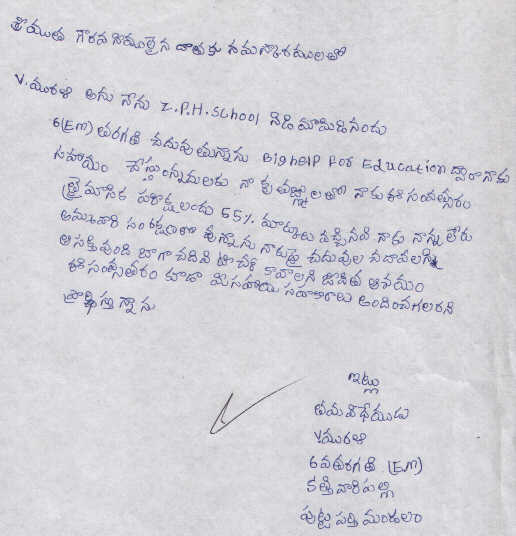 శ్రీయుత గౌరవనీయులైన దాతకు నమస్కారములతో
V. మురళి అను నేను Z.P.H. School నిడిమామిడినందు
6(EM) తరగతి చదువుతున్నాను BigHelp For Education ద్వారా నాకు
సహాయం చేస్తున్నందులకు నా కృతజ్ఞతలతో నాకు ఈ సంవత్సరం
త్రైమాసిక పరీక్షలందు 55% మార్కులు వచ్చినవి నాకు నాన్న లేరు
అమ్మవారి సంరక్షణలో వున్నాను నాకుపై చదువుల చదావలని
ఆసక్తివుంది బాగా చదివి టీచర్ కావాలని జీవిత ఆశయం
ఈ సంవత్సరం కూడా మీ సహాయ సహకారాలు అందించగలరని
ప్రార్థిస్తున్నాను
ఇట్లు
తమ విధేయుడు
V మురళి
6వ తరగతి (EM)
కత్తివారిపల్లి
పుట్టపర్తి మండలం